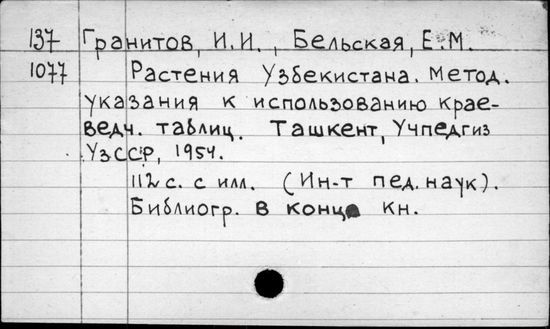 137 Гранитов, И.И., Бельская, Е.М.
1077 Растения Узбекистана. Метод.
указания к использованию крае-
ведч. таблиц. Ташкент, Учпедгиз
УзССР, 1954.
112 с. с илл. (Ин-т пед. наук).
Библиогр. в конце кн.